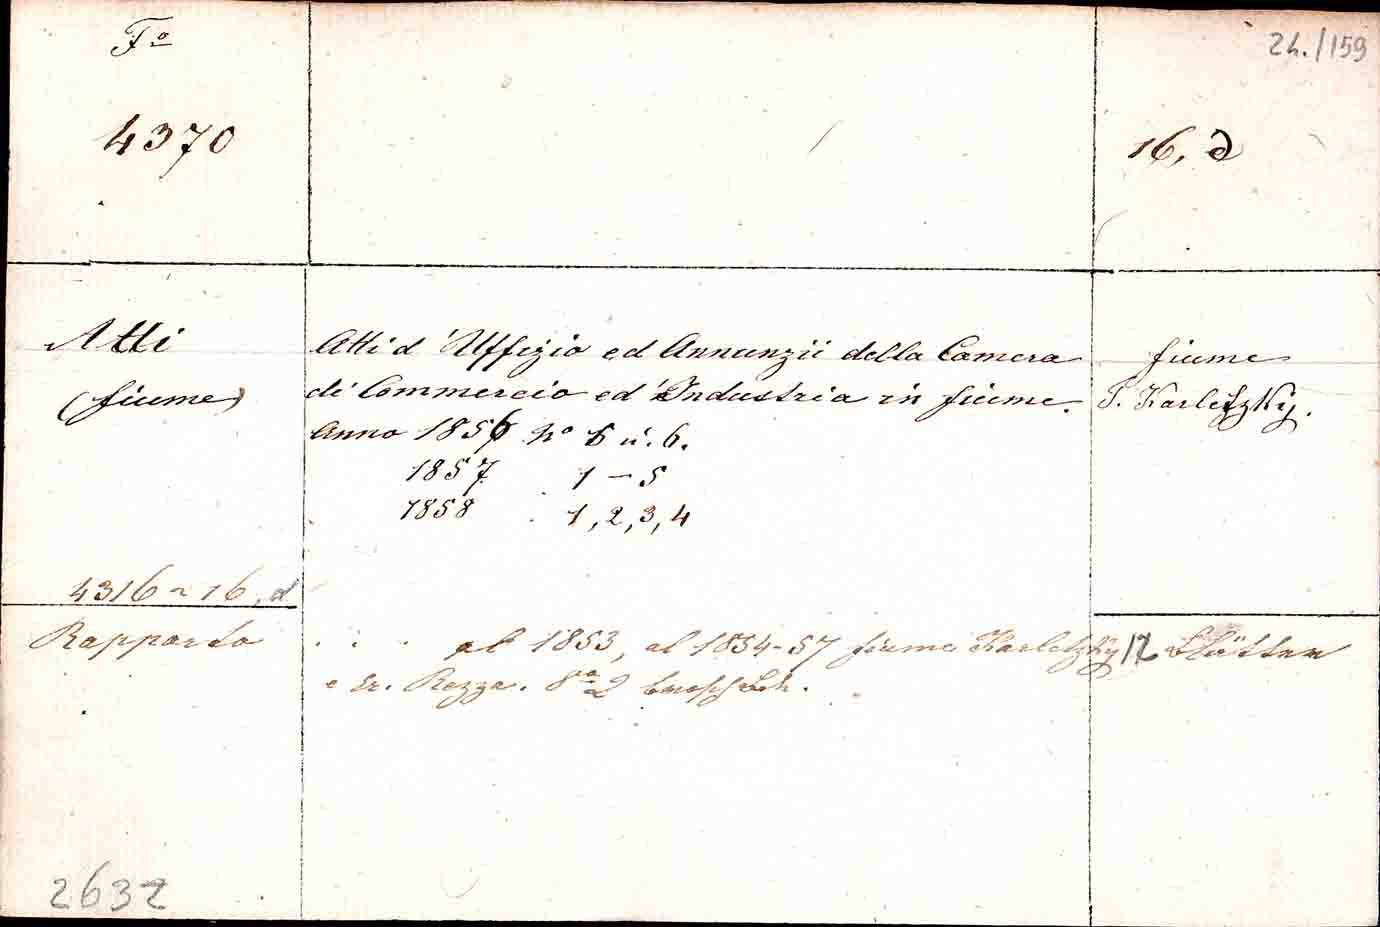 Fo
24./159
4370
16, d
Atti
(fiume)
Atti d'Uffizio ed Annunzii della Camera
di Commercio ed Industria in fiume.
Anno 1856 No 5 u. 6.
1857 1 – 5
1858 1, 2, 3, 4
fiume
Karletzky.
4316 ~ 16, d
Rapporto
. . . al 1853, al 1854-57 fiume Karletzky
e Er. Rezza. 8vo 2
2632